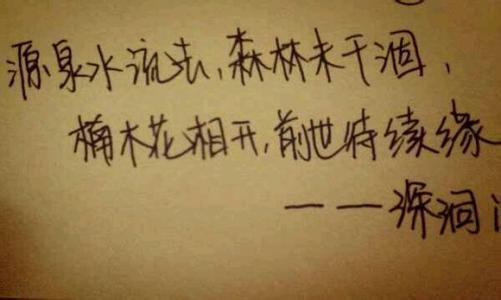 源泉水流去,森林未干涸,
楠木花相开,前世待续缘
——深洞